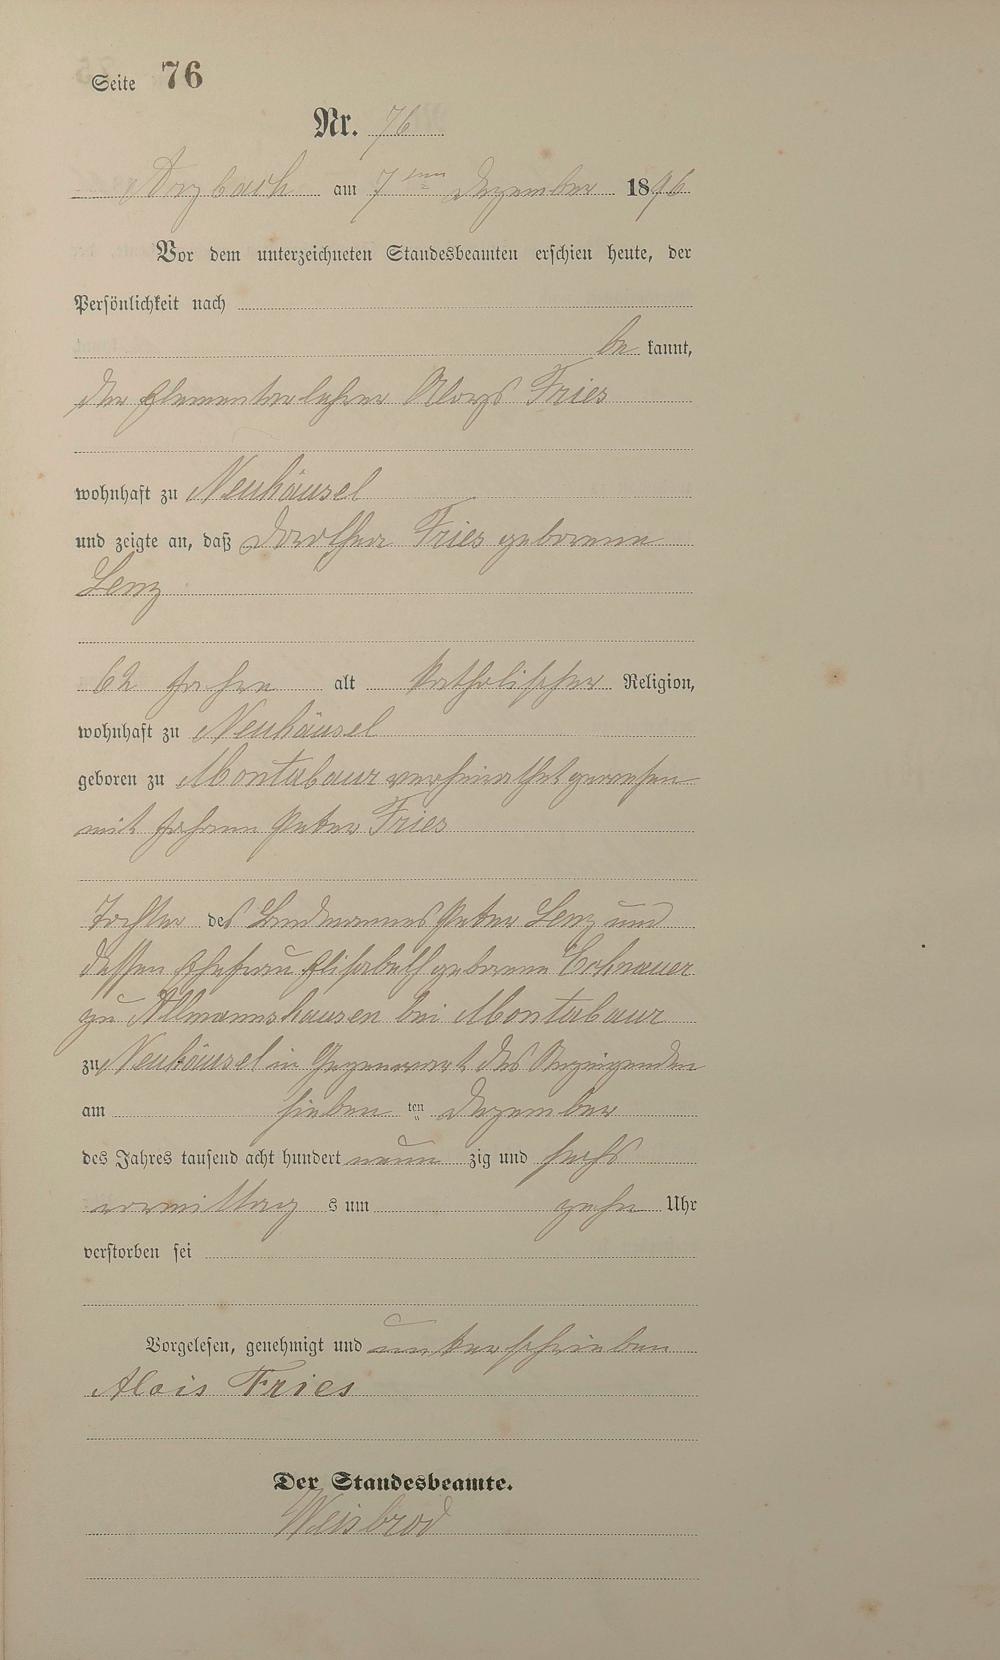 Seite 76
Nr. 76
Arzbach am 7ten Dezember 1896
Vor dem unterzeichneten Standesbeamten erschien heute, der
Persönlichkeit nach
be kannt,
der Elementarlehrer Aloys Fries
wohnhaft zu Neuhäusel
und zeigte an, daß Dorothea Fries geborene
Lenz
62 Jahre alt katholischer Religion,
wohnhaft zu Neuhäusel
geboren zu Montabaur verheirathet gewesen
mit Johann Peter Fries
Tochter des Landmannes Peter Lenz und
dessen Ehefrau Elisabeth geborene
zu Allmannshausen bei Montabaur
zu Neuhäusel in Gegenwart des Anzeigenden
am sieben ten Dezember
des Jahres tausend acht hundert neun zig und sechs
vormittag s um zehn Uhr
verstorben sei
Vorgelesen, genehmigt und unterschrieben
Alois Fries
Der Standesbeamte.
Weisbrod